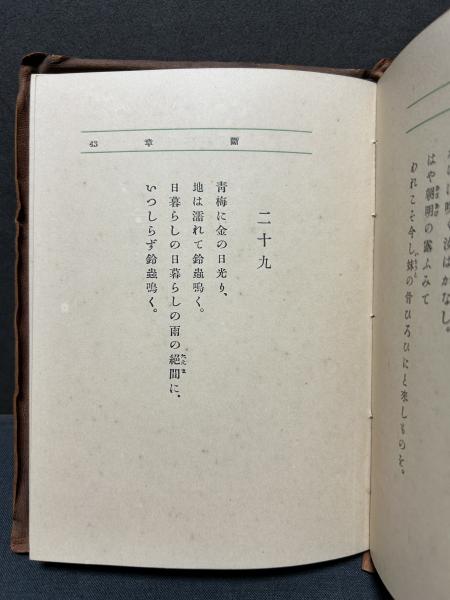 43 章 斷
二十九
靑梅に金の日光り、
地は濡れて鈴蟲鳴く。
日暮らしの日暮らしの雨の絕間に、
たえま
いつしらず鈴蟲鳴く。
はかなし。
はや朝明の露ふみて
われこそ今し妹の骨ひろひにと來しものを。